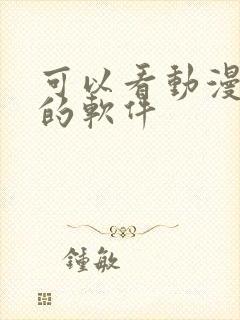 可以看動漫
的軟件
鍾敏